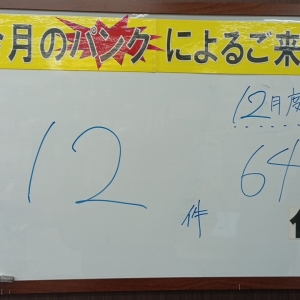 月のパンクによるご来
12月度
12件
64